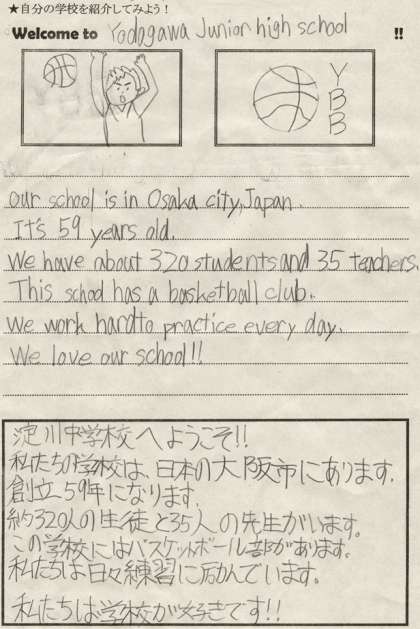 ★自分の学校を紹介してみよう!
Welcome to Yodogawa Junior high school !!
Y
B
B
Our school is in Osaka city, Japan.
It's 59 years old.
We have about 320 students and 35 teachers.
This school has a basketball club.
We work hard to practice every day.
We love our school!!
淀川中学校へようこそ!!
私たちの学校は、日本の大阪市にあります。
創立59年になります。
約320人の生徒と35人の先生がいます。
この学校にはバスケットボール部があります。
私たちは日々練習に励んでいます。
私たちは学校が好きです!!